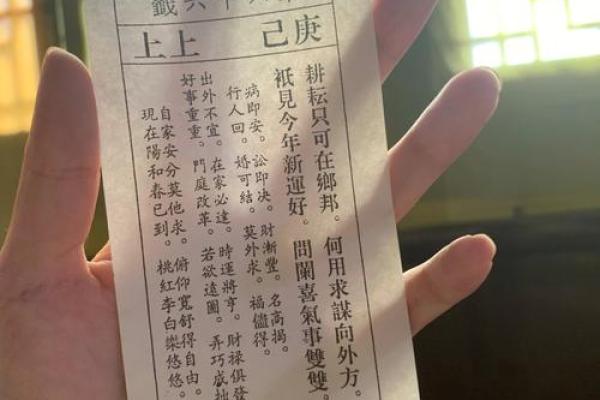 十六籤
庚己 上上
耕耘只可在鄉邦。何用求謀向外方。
祇見今年新運好。問闌喜氣事雙雙。
病即安。訟即决。財漸豐。名高揭。
行人回。婚可結。莫外求。福儘得。
出外不宜。在家必達。時運將亨。財祿俱發
好事重重。門庭改革。若欲遠圖。弄巧成拙
自家安分莫他求。俯仰寬舒得自由。
現在陽和春已到。桃紅李白樂悠悠。